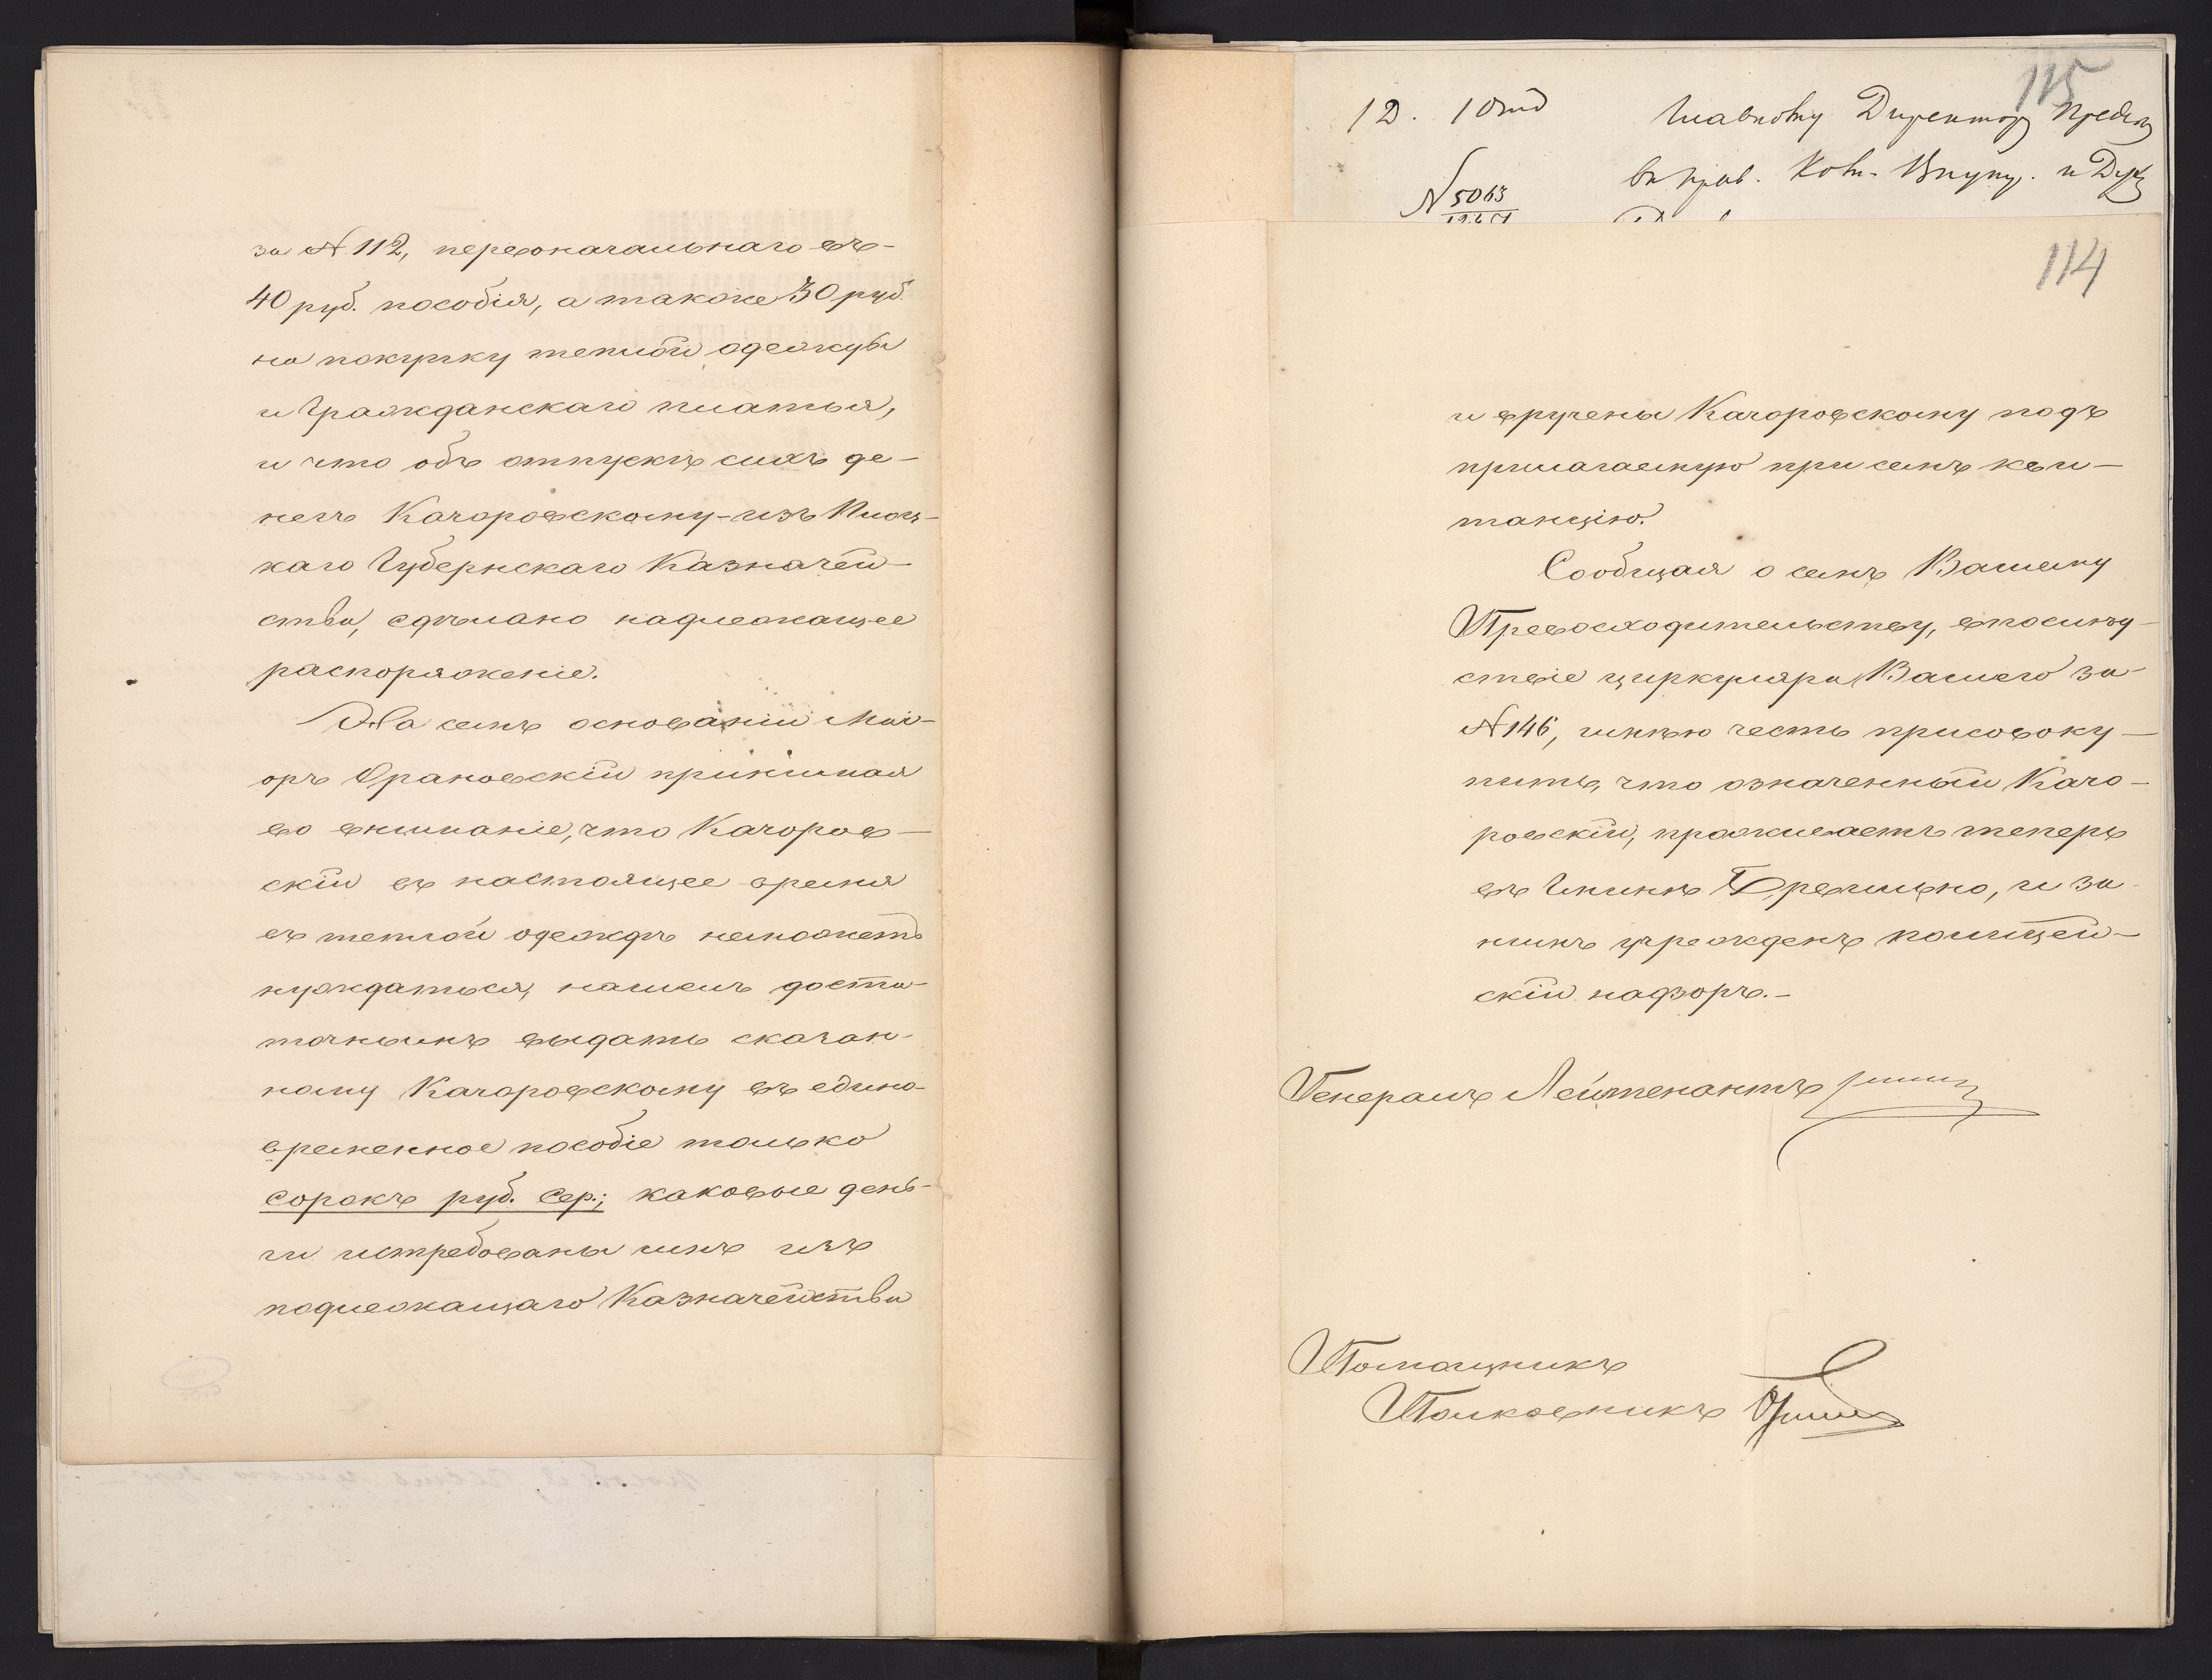 за № 112, первоначальнаго въ-
40 руб. пособія, а также 30 руб.
на покупку теплой одежды
и Гражданскаго платья,
и что объ отпускѣ сихъ де-
негъ Качоровскому - изъ Плоц-
каго Губернскаго Казначей-
ства, сдѣлано надлежащее
распоряженіе.
На семъ основаніи Маі-
оръ Орановскій принимая
во вниманіе, что Качоров-
скій въ настоящее время
въ теплой одеждѣ неможетъ
нуждаться, нашелъ доста-
точнымъ выдать сказан-
ному Качоровскому въ едино-
временное пособіе только
сорокъ руб. сер.; каковые день-
ги истребованы имъ изъ
подлежащаго Казначейства
115
12. 1 Отд
Главному Директору Предсѣд
въ Прав. Ком. Внутр. и Дух
№ 5063
114
и вручены Качоровскому подъ
прилагаемую при семъ кви-
танцію.
Сообщая о семъ Вашему
Превосходительству, впослѣд-
ствіе циркуляра Вашего за
№ 146, имѣю честь присовоку-
пить, что означенный Качо-
ровскій, проживаетъ теперь
въ Гминѣ и за
нимъ учрежденъ полицей-
скій надзоръ.-
Генералъ Лейтенантъ
Помощникъ
Полковникъ